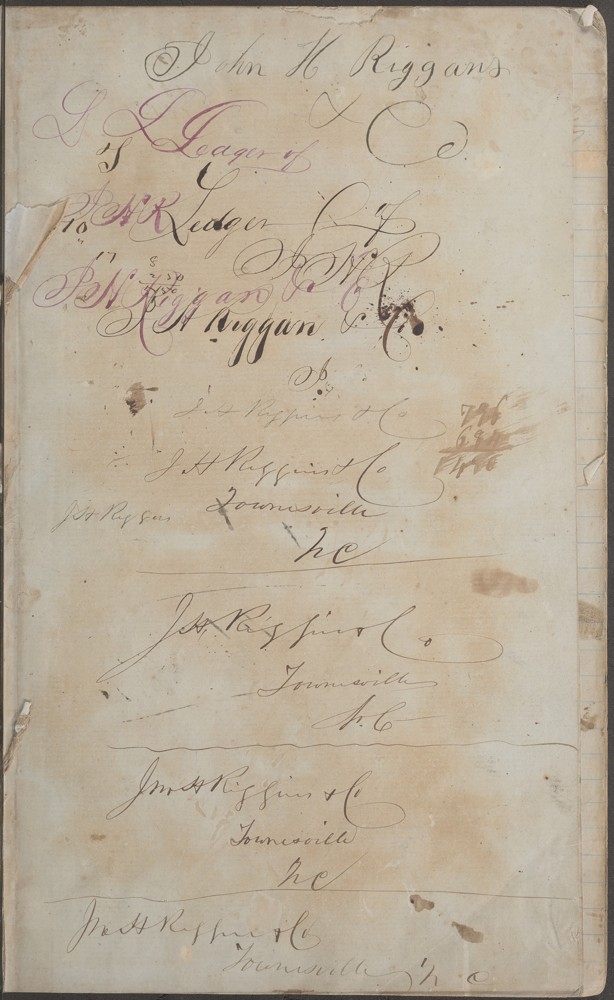 John H Riggans
& Co
L Leager of
of
JHR Ledger of
10
J H R
17 8
2/50
J H Riggan & Co
J H Riggan & Co.
J
J H Riggins & Co
796
690
J H Riggins & Co
1486
J H Riggins Townesville
NC
J H Riggins & Co
Townesville
N. C
Jno H Riggins & Co
Townesville
NC
Jno H Riggins & Co
Townesville N C